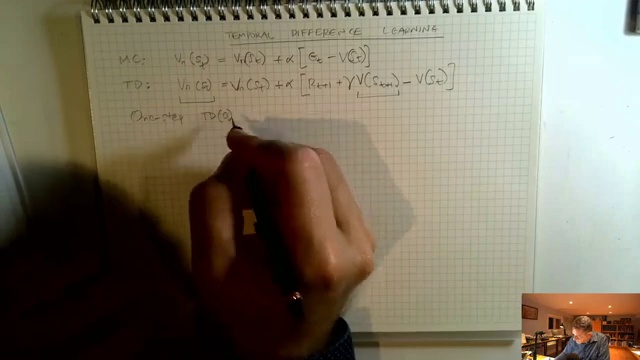 TEMPORAL DIFFERENCE LEARNING
MC: Vπ(St) = Vπ(St) + α [Gt - V(St)]
TD: Vπ(St) = Vπ(St) + α [Rt+1 + γV(St+1) - V(St)]
One-step TD(0)